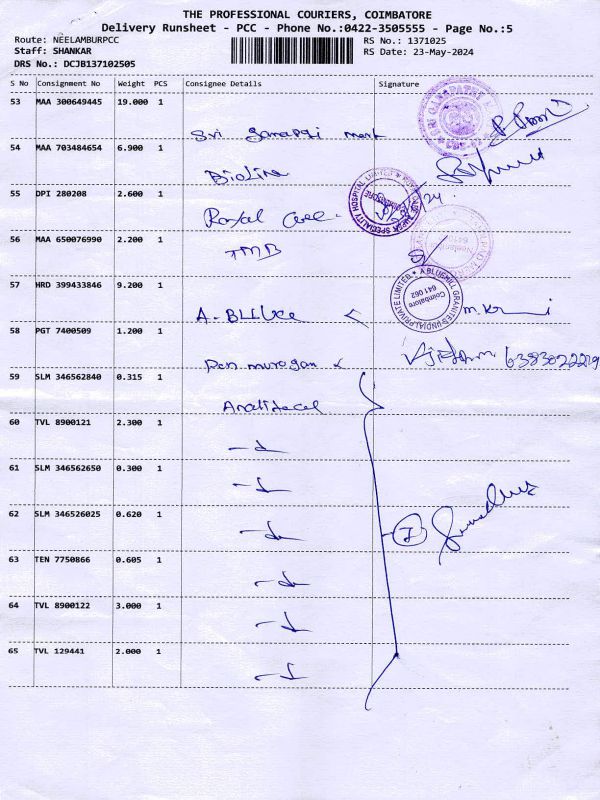 THE PROFESSIONAL COURIERS, COIMBATORE
Delivery Runsheet - PCC - Phone No.:0422-3505555 - Page No.:5
Route: NEELAMBURPCC RS No.: 1371025
Staff: SHANKAR RS Date: 23-May-2024
DRS No.: DCJB137102505
S No Consignment No Weight PCS Consignee Details Signature
53 MAA 300649445 19.000 1
Sri
54 MAA 703484654 6.900 1
Bioline
55 DPI 280208 2.600 1
Royal Care
56 MAA 650076990 2.200 1
TMB
57 HRD 399433846 9.200 1
A. Blue
58 PGT 7400509 1.200 1
Pon murugan 6383022219
59 SLM 346562840 0.315 1
60 TVL 8900121 2.300 1
61 SLM 346562650 0.300 1
62 SLM 346526025 0.620 1
7
63 TEN 7750866 0.605 1
64 TVL 8900122 3.000 1
65 TVL 129441 2.000 1